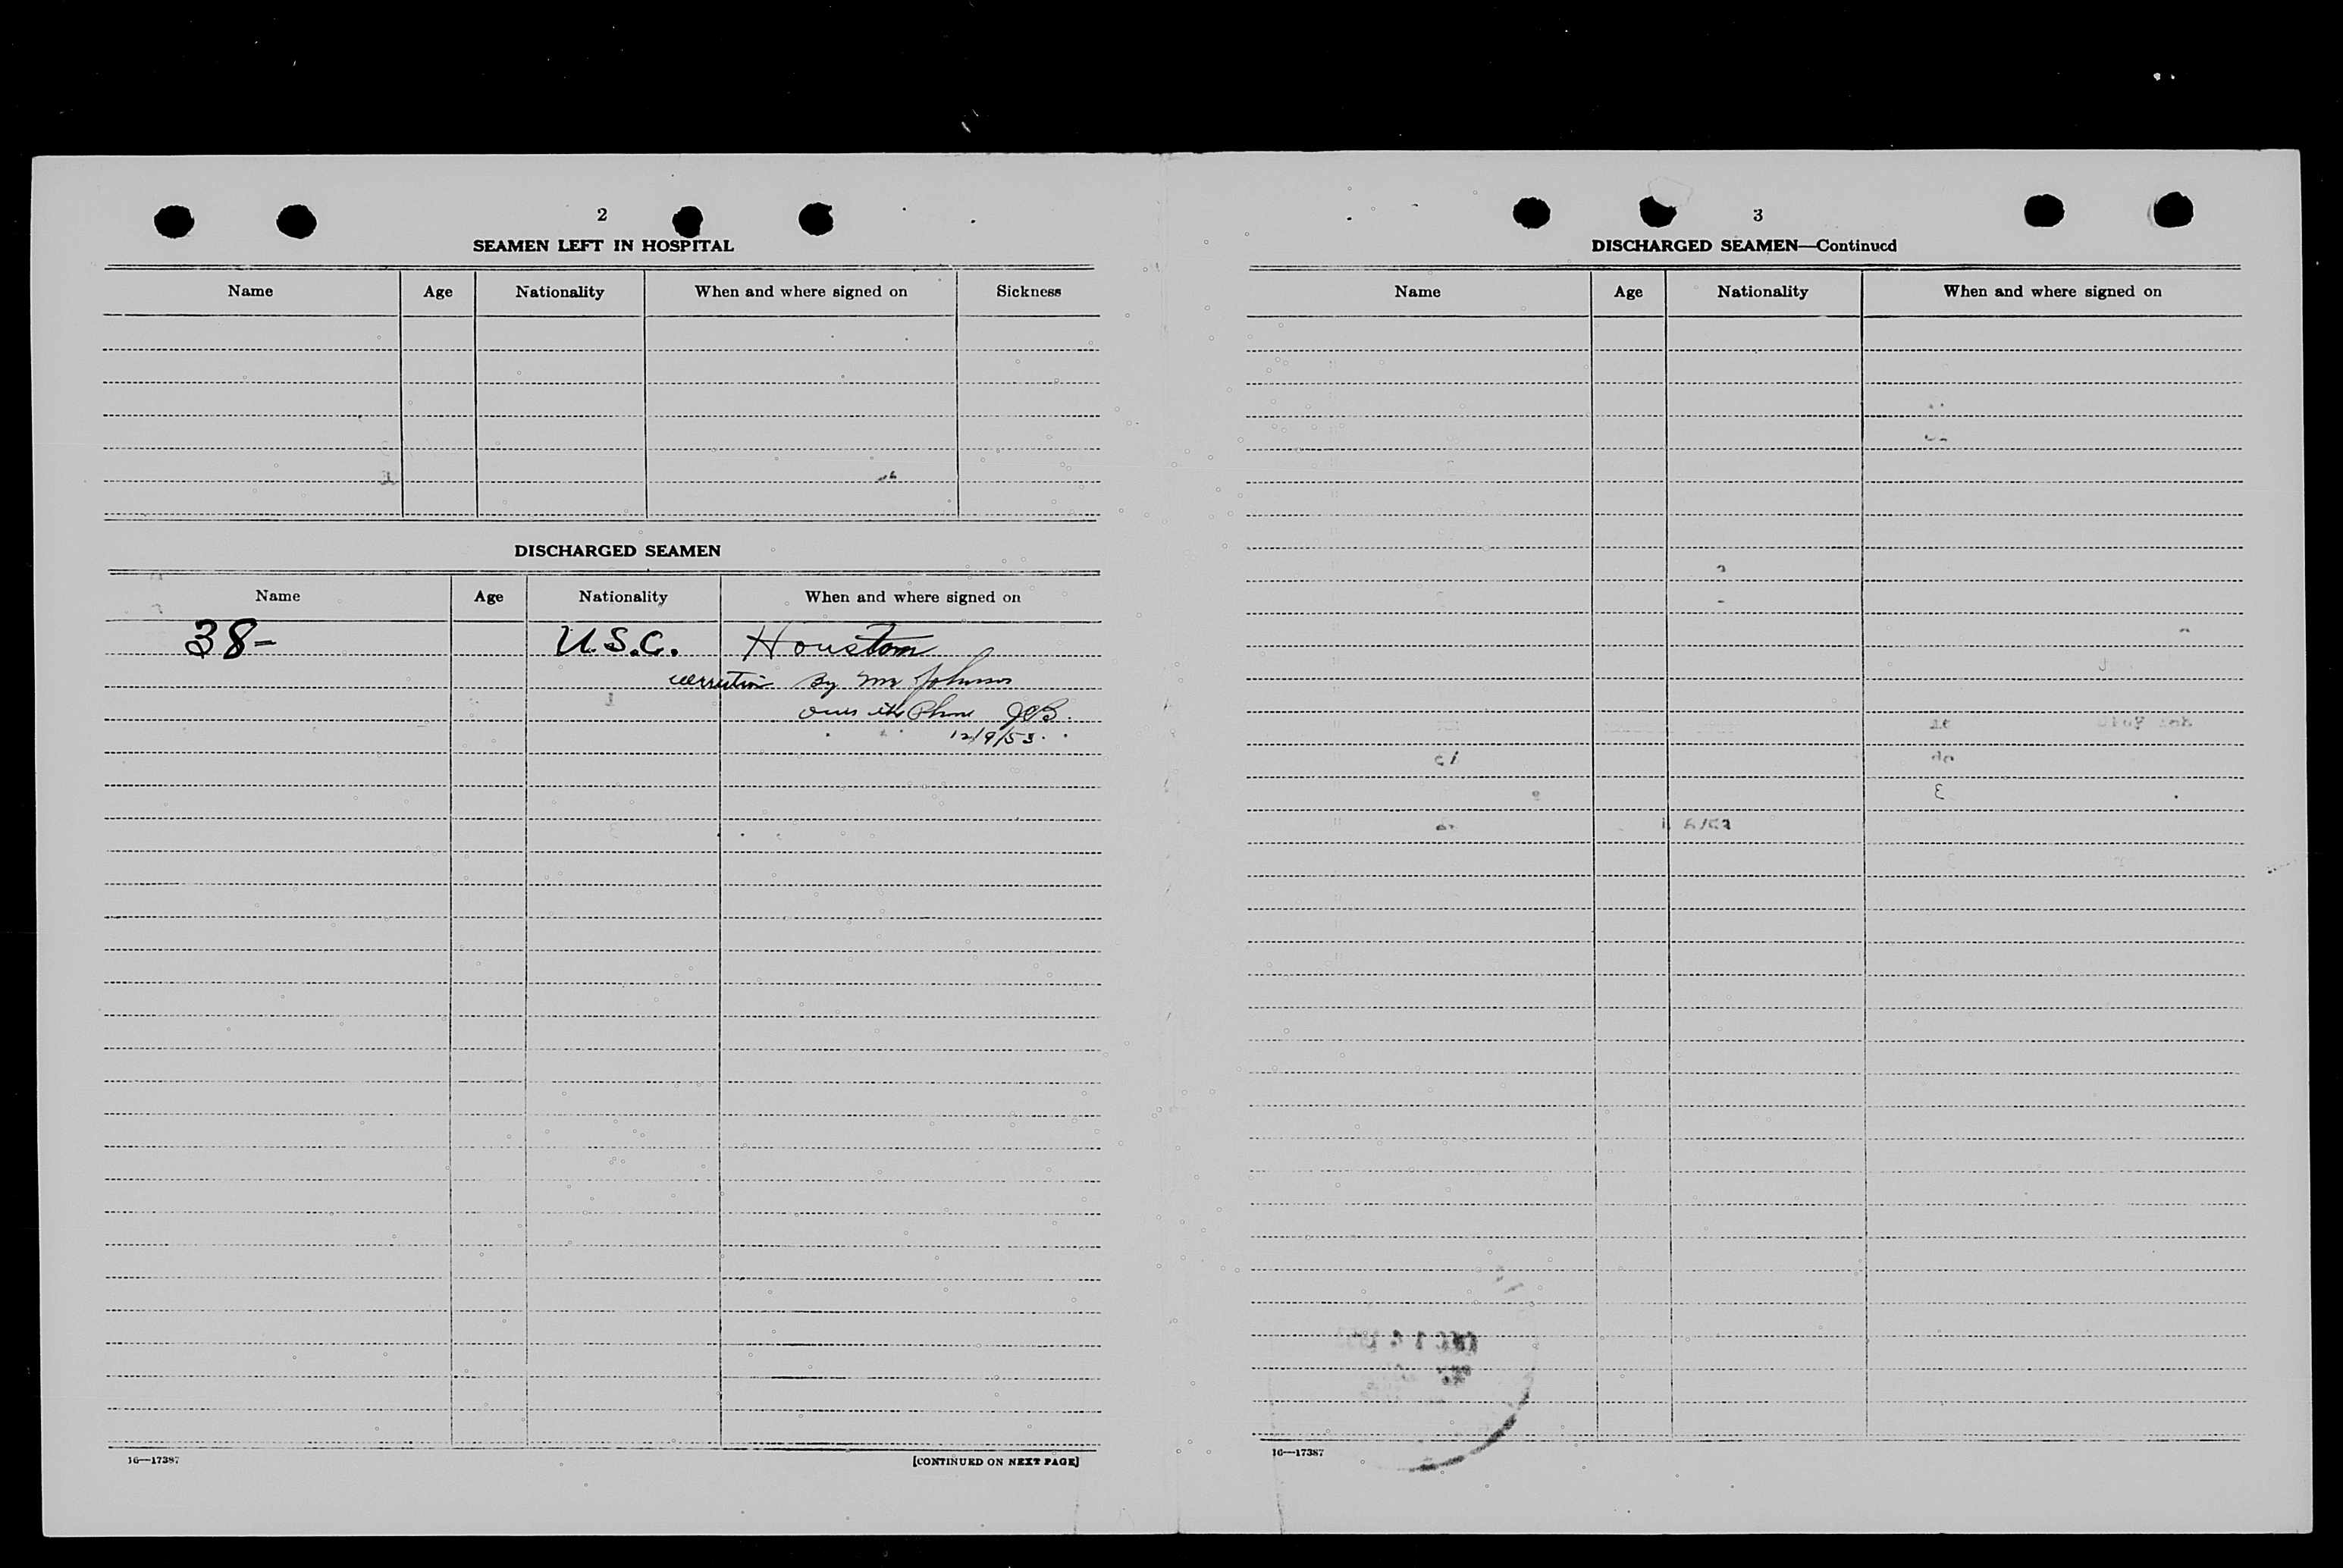 2
SEAMEN LEFT IN HOSPITAL
Name Age Nationality When and where signed on Sickness
DISCHARGED SEAMEN
Name Age Nationality When and where signed on
38- U.S.C. Houston
correction By Mr Johnson
over the Phone JCB.
12/9/53.
16—17387
[CONTINUED ON NEXT PAGE]
3
DISCHARGED SEAMEN—Continued
Name Age Nationality When and where signed on
16—17387